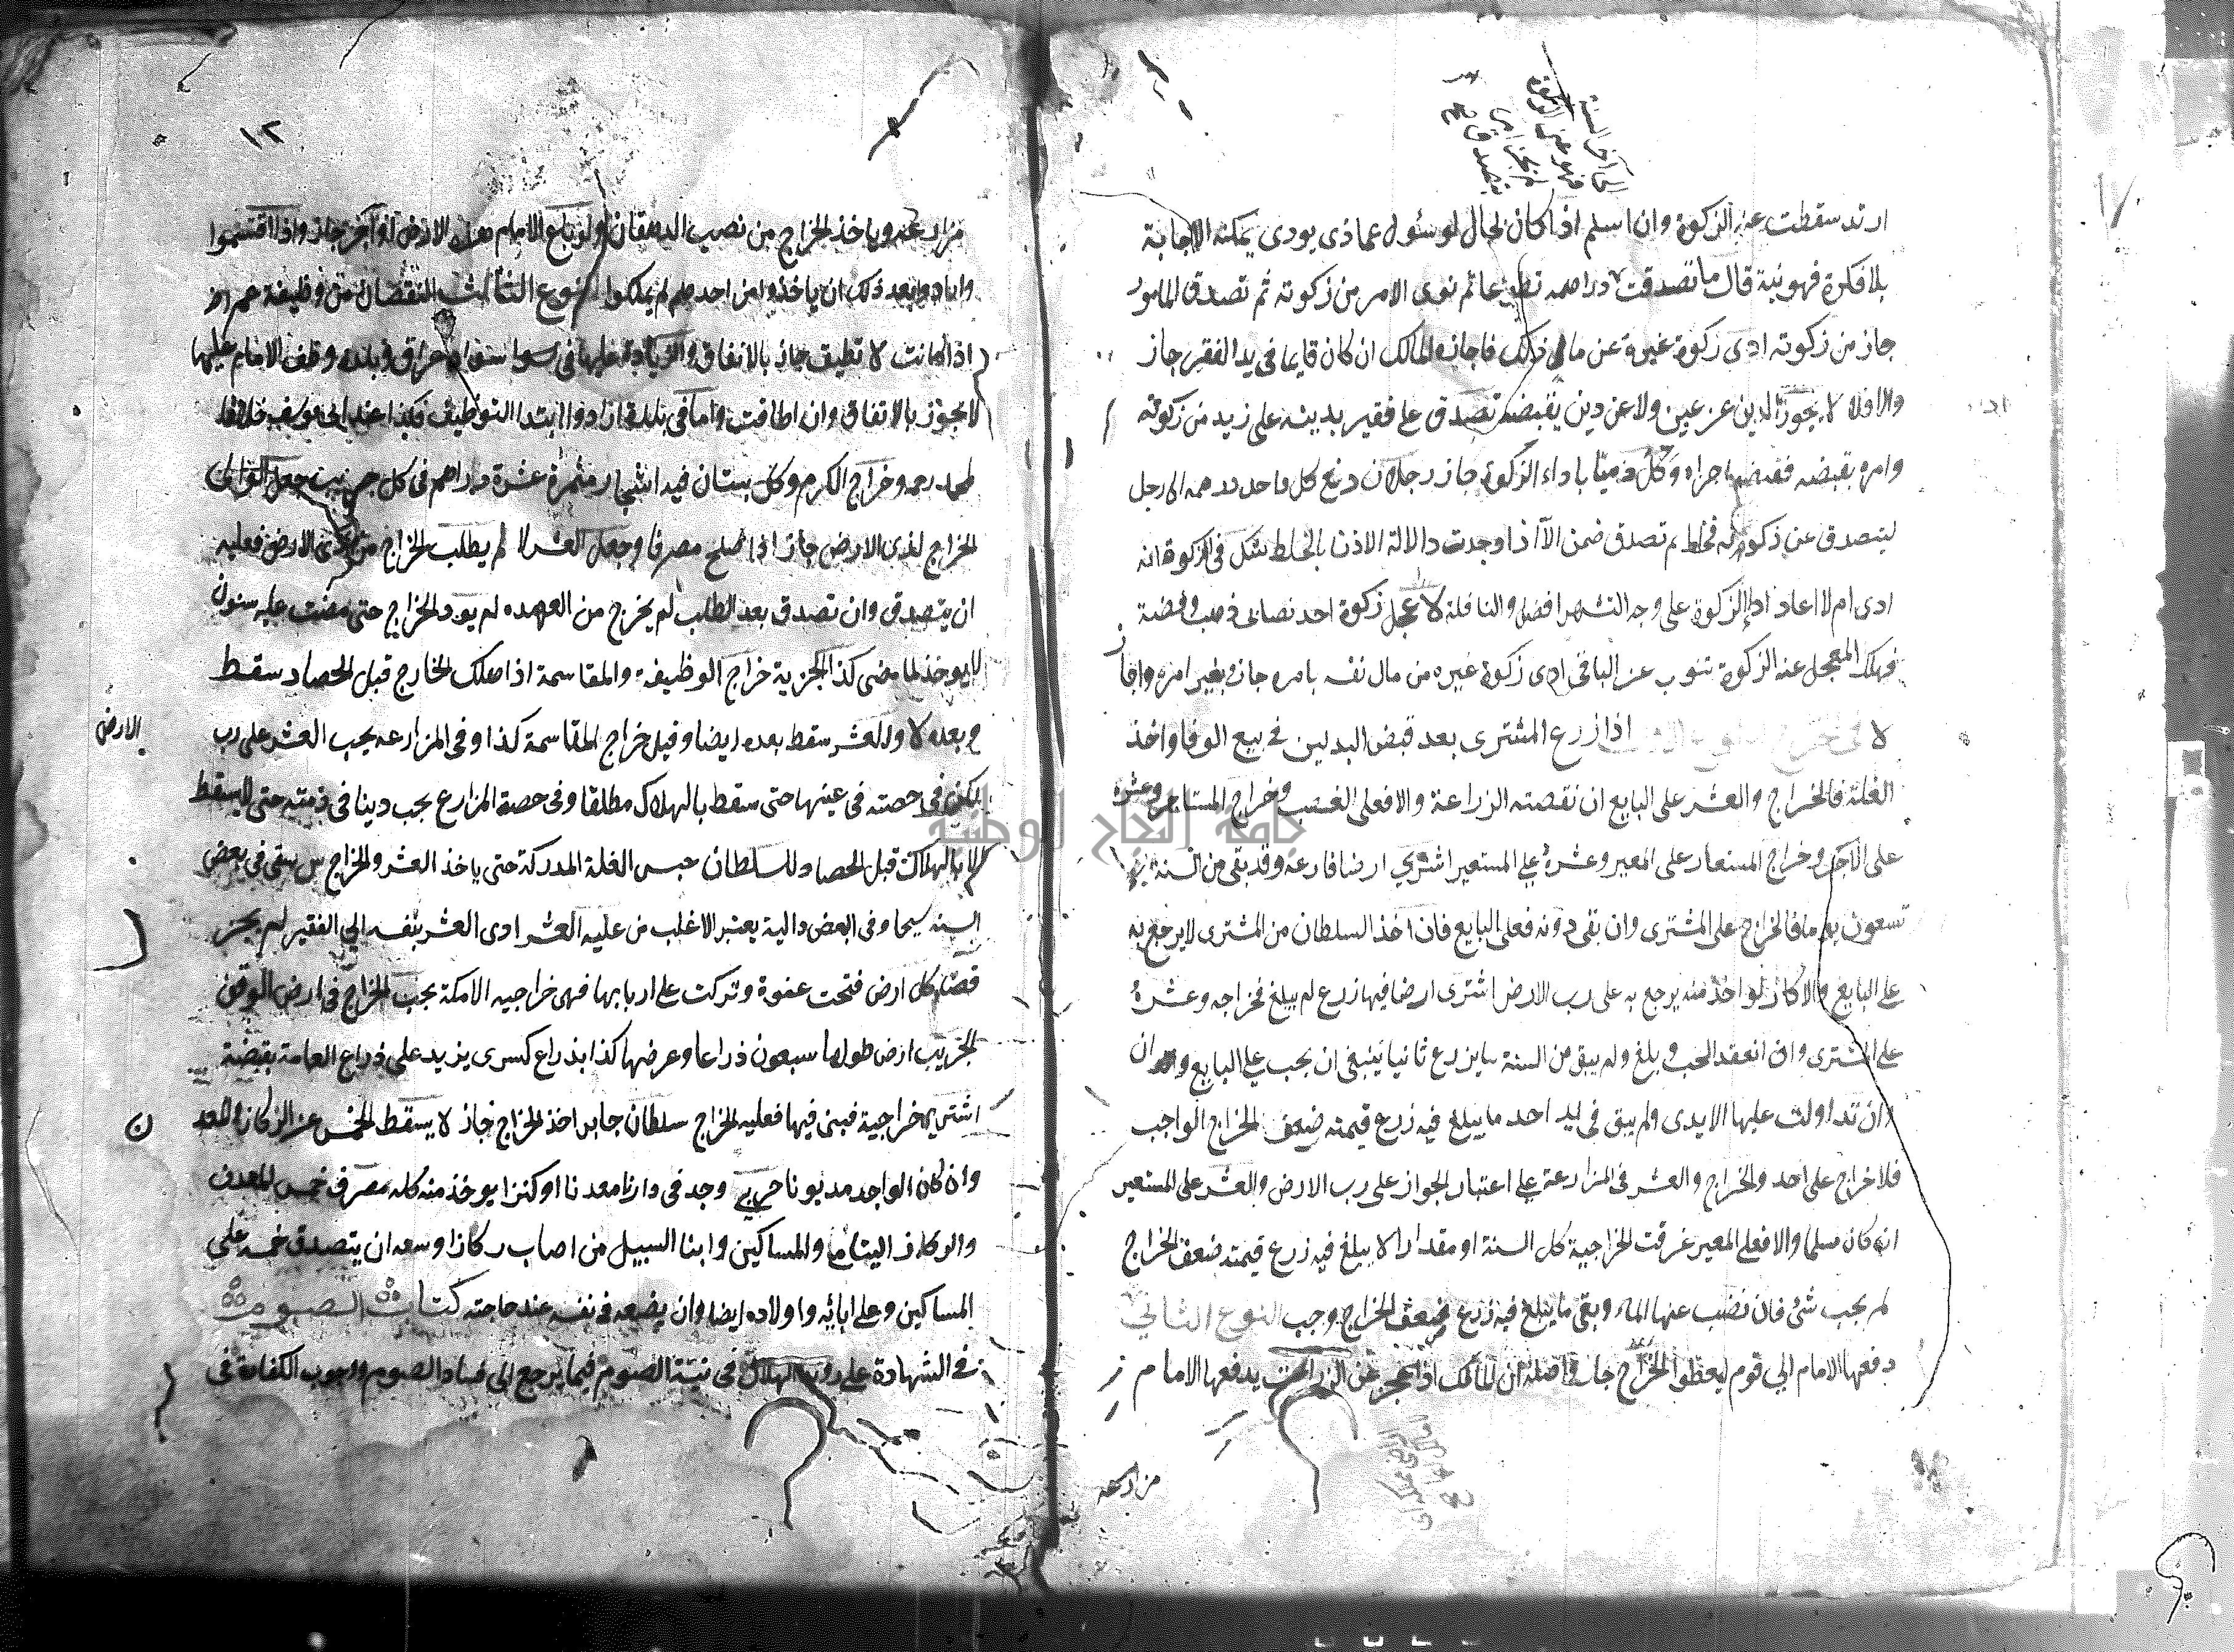 ارتد سقطت عنه الزكوة وان اسلم اذا كان لحال لو سئول عما ذى يودى يمكنه الاجابة
بلا فكرة فهو نية قال ما تصدقت دراهمه تطوعا ثم نوى الامر من زكوته ثم تصدق المامور
جاز من زكوته ادى زكوة غيره عن مال ذلك فاجازه المالك ان كان قايما فى يد الفقير جاز
والا فلا لا يجوز الدين عن عين ولا عن دين يقبضه تصدق على فقير بدينه على زيد من زكوته
وامره بقبضه فقبضه اجزاه وكل ذميا باداء الزكوة جاز رجلان دفع كل واحد درهمه الى رجل
ليتصدق عن زكوته فخلط ثم تصدق ضمن الا اذا وجدت دلالة الاذن بالخلط شك فى الزكوة انه
ادى ام لا اعاد اداء الزكوة على وجه التشهر افضل والنافلة لا عجل زكوة احد نصابى ذهب وفضة
فهلك المعجل عنه الزكوة تنوب عن الباقى ادى زكوة غيره من مال نفسه بامره جاز وبغير امره واجاز
لا اذا زرع المشترى بعد قبض البدلين فى بيع الوفا واخذ
الغلة فالخراج والعشر على البايع ان نقصته الزراعة والا فعلى الغصب وخراج المستاجر وعشره
على الآجر وخراج المستعار على المعير وعشره على المستعير اشترى ارضا فارغة وقد بقى من السنة
تسعون يوما فالخراج على المشترى وان بقى دونه فعلى البايع فان اخذ السلطان من المشترى لا يرجع به
على البايع والاكار لو اخذ منه يرجع به على رب الارض اشترى ارضا فيها زرع لم يبلغ فخراجه وعشره
على المشترى وان انعقد الحب وبلغ ولم يبق من السنة ما يزرع ثانيا ينبغى ان يجب على البايع وان
وان تداولت عليها الايدى ولم يبق فى يد احد ما يبلغ فيه زرع قيمته ضعف الخراج الواجب
فلا خراج على احد والخراج والعشر فى المزارعة على اعتبار الجواز على رب الارض والعشر على المستعير
ان كان مسلما والا فعلى المعير غرقت الخراجية كل السنة او مقدارا لا يبلغ فيه زرع قيمته ضعف الخراج
لم يجب شئ فان نضب عنها الماء وبقى ما يبلغ فيه زرع ضعف الخراج وجب النوع الثانى
دفعها الامام الى قوم ليعطوا الخراج جاز المالك اذا عجز عن الزراعة يدفعها الامام
مزارعة
١٢
مزارعة وياخذ الخراج من نصيب الدهقان ولو باع الامام هذه الارض او آجر جاز واذا اقتسموا
وابادوا بعد ذلك ان ياخذوا من احد منهم لم يملكوا النوع الثالث النقصان من وظيفة عمر رض
اذا كانت لا تطيق جاز بالاتفاق والزيادة عليها فى سواد عراق وبلدة وظف الامام عليها
لا يجوز بالاتفاق وان اطاقت واما فى بلدة ارادوا ابتدا التوظيف فكذا عند ابى يوسف خلافا
لمحمد رحمه وخراج الكرم وكل بستان فيه اشجار مثمرة عشرة دراهم فى كل جريب جعل
الخراج لذى الارض جاز اذا صلح مصرفا وجعل العشر لا لم يطلب الخراج من ذى الارض فعليه
ان يتصدق وان تصدق بعد الطلب لم يخرج من العهده لم يود الخراج حتى مضت عليه سنون
لا يوخذ لما مضى كذا الجزية خراج الوظيفة والمقاسمة اذا هلك الخارج قبل الحصاد سقط
وبعده لا وللعشر سقط بعده ايضا وقيل خراج المقاسمة كذا وفى المزارعه يجب العشر على رب
الارض
لكن فى حصته فى عينها حتى سقط بالهلاك مطلقا وفى حصة المزارع يجب دينا فى ذمته حتى لا يسقط
بالهلاك قبل الحصاد وللسلطان حبس الغلة المدركة حتى ياخذ العشر والخراج يسقى فى بعض
السنه سيحا وفى البعض دالية يعتبر الاغلب من عليه العشر ادى العشر بنفسه الى الفقير لم يجز
قضاء كل ارض فتحت عنوة وتركت على اربابها فهى خراجيه الا مكة يجب الخراج فى ارض الوقف
الجريب ارض طولها سبعون ذراعا وعرضها كذا بذراع كسرى يزيد على ذراع العامة بقبضة
اشترى خراجية فبنى فيها فعليه الخراج سلطان جابر اخذ الخراج جاز لا يسقط الخمس عن الركاز
وان كان الواجد مديونا حربى وجد فى دارنا معدنا او كنزا يوخذ منه كله مصرف خمس المعدن
والركاز اليتامى والمساكين وابنا السبيل من اصاب ركازا وسعه ان يتصدق خمسه على
المساكين وعلى ابائه واولاده ايضا وان يضعه فى نفسه عند حاجته كتاب الصوم
فى الشهادة على روية الهلال فى نية الصوم فيما يرجع الى فساد الصوم وجوب الكفارة فى
جامعة النجاح الوطنية